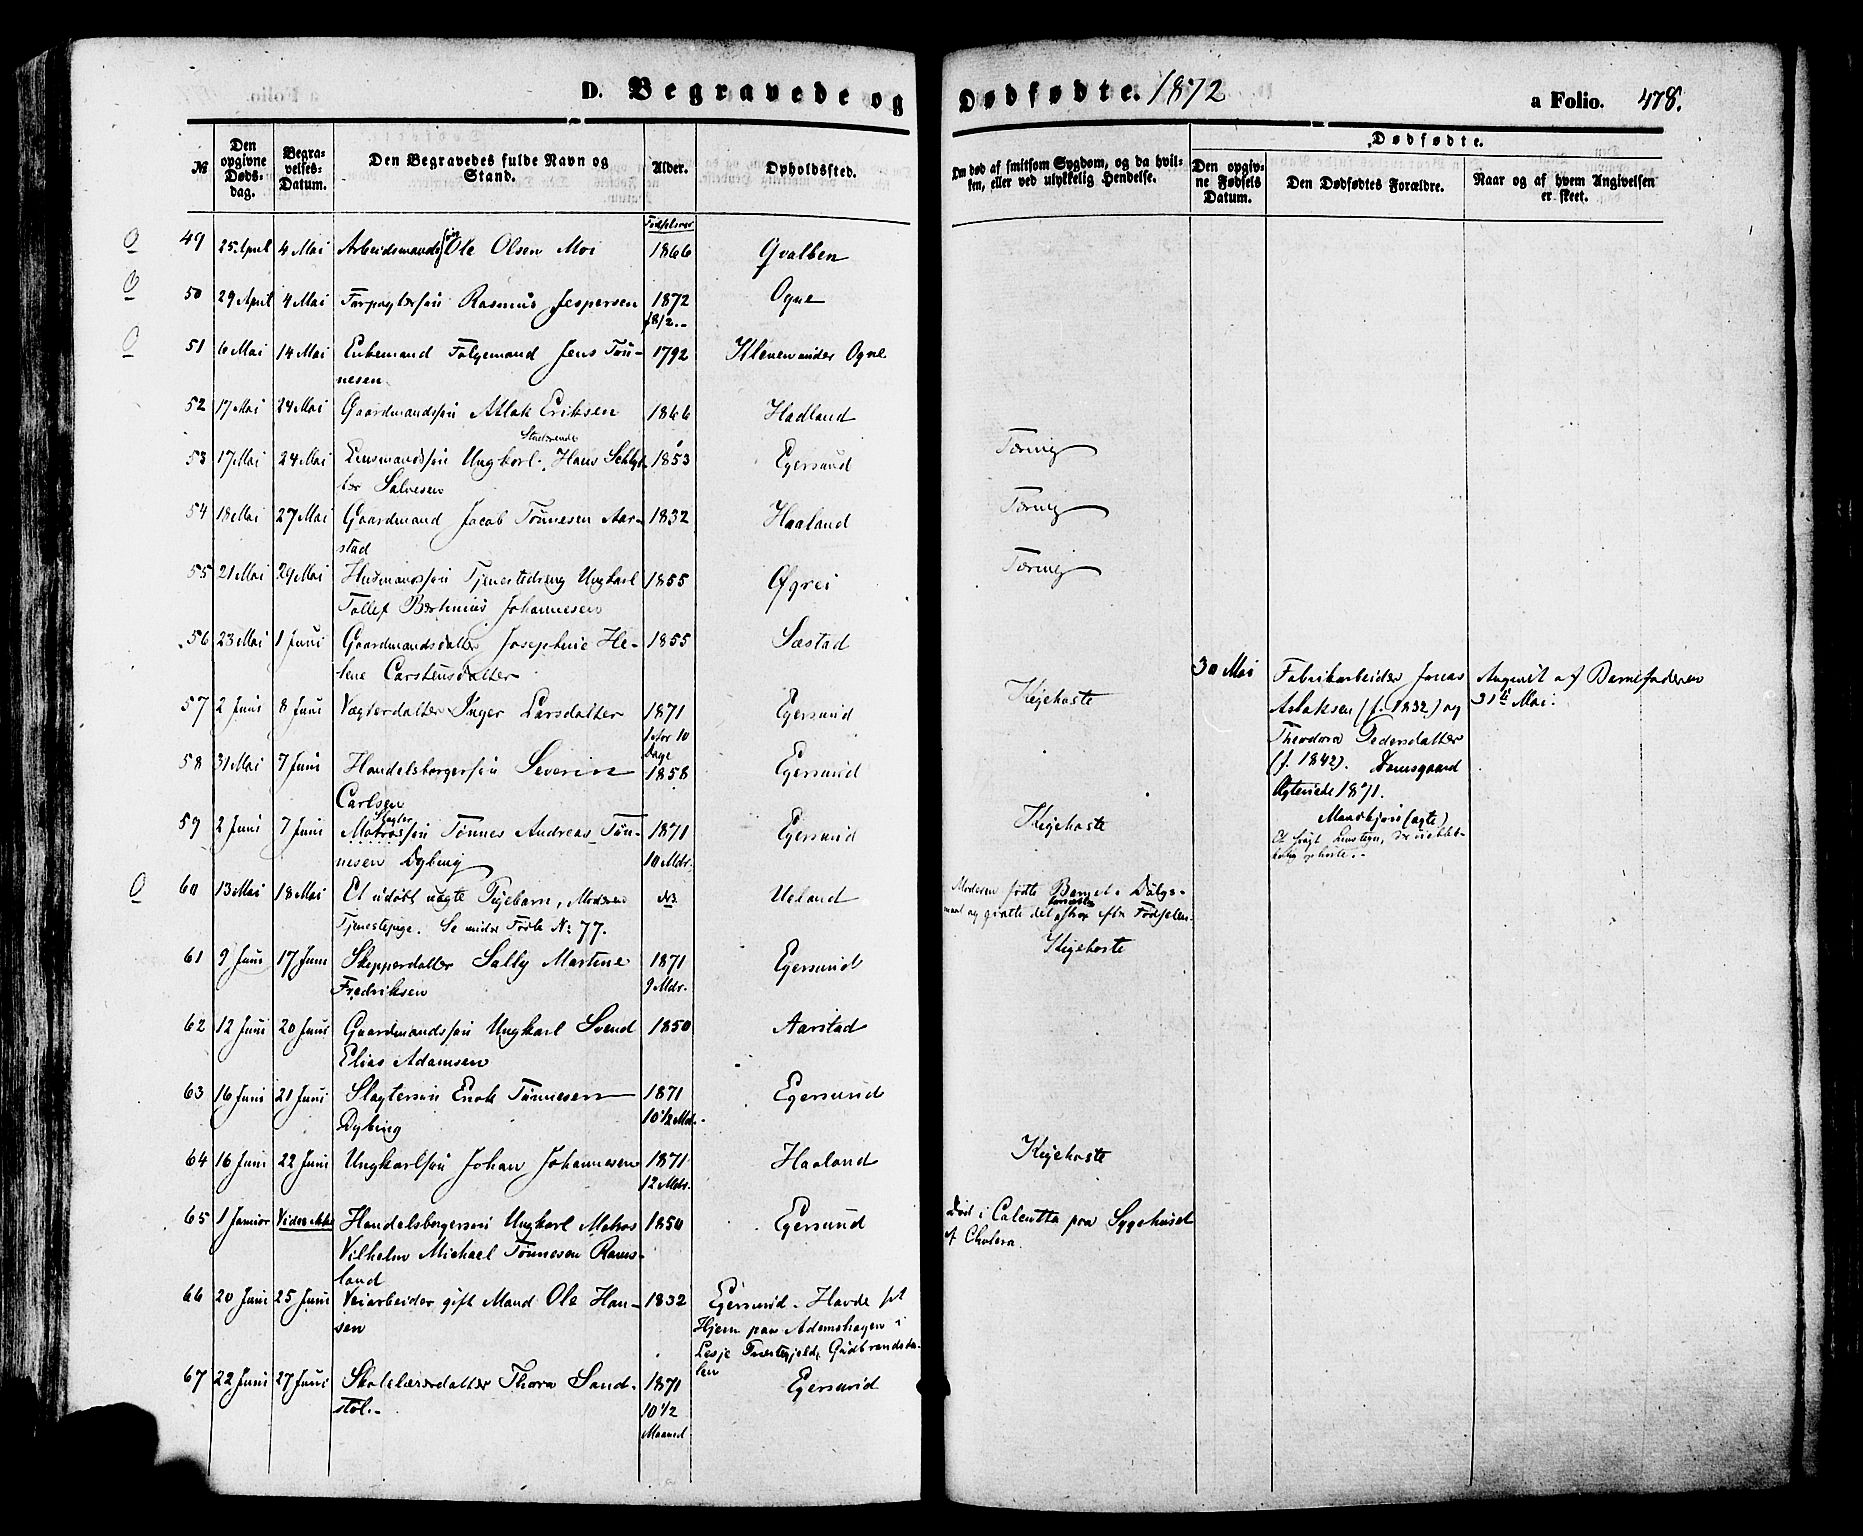 D. Begravede og Dødfødte. 1872 a Folio. 478.
Dødfødte.
№
Den opgivne Dødsdag.
Begravelses-Datum.
Den Begravedes fulde Navn og Stand.
Alder.
Opholdsted.
Om død af smitsom Sygdom, og da hvilken, eller ved ulykkelig Hendelse.
Den opgivne Fødsels Datum.
Den Dødfødtes Forældre.
Naar og af hvem Angivelsen er skeet.
Fødselsaar
49 25 April 4 Mai Arbeidsmandssøn Ole Olsen Moi 1866 Qvalben
50 29 April 4 Mai Forpagtersøn Rasmus Jespersen 1872 Ogne
18/2.-
51 6 Mai 14 Mai Enkemand Følgemand Jens Tøn- 1792 Ogne
nesen
52 17 Mai 24 Mai Gaardmandssøn Atlak Eriksen 1866 Hadland
Studerende
53 17 Mai 24 Mai Lensmandssøn Ungkarl Hans Schlyt- 1853 Egersund Tæring
ter Salvesen
54 18 Mai 27 Mai Gaardmand Jacob Tønnesen Aar- 1832 Haaland Tæring
stad
55 21 Mai 29 Mai Husmandssøn Tjenestedreng Ungkarl 1855 Øgrei Tæring
Tollef Bertinius Johannesen
56 23 Mai 1 Juni Gaardmandsdatter Josephine He- 1855 Sæstad
lene Carstensdatter
30 Mai Fabrikarbeider Jonas Angivet af Barnefaderen
Aslaksen (f. 1832) og 31te Mai.
Theodora Pedersdatter
(f. 1842). Damsgaard
Ægteviede 1871.
Mandkjøn (ægte)
57 2 Juni 8 Juni Vægterdatter Inger Larsdatter 1871 Egersund Kighoste
1 Aar 10
Dage
58 31 Mai 7 Juni Handelsborgersøn Severin 1858 Egersund
Carlsen
Slagter
59 2 Juni 7 Juni Matrossøn Tønnes Andreas Tøn- 1871 Egersund Kighoste
nesen Dybing 10 Mdr.
60 13 Mai 18 Mai Et udøbt uægte Pigebarn, Moderen Ueland Moderen fødte Barnet i Dølgs-
Tjenestepige. Se under Fødte N: 77. maal og Fødselen.
61 9 Juni 17 Juni Skipperdatter Sally Martine 1871 Egersund Kighoste
Fredriksen 9 Mdr.
62 12 Juni 20 Juni Gaardmandssøn Ungkarl Svend 1850 Aarstad
Elias Adamsen
63 16 Juni 21 Juni Slagtersøn Enok Tønnesen 1871 Egersund
Dybing 10 1/2 Mdr.
64 16 Juni 22 Juni Ungkarlsøn Johan Johannesen 1871 Haaland Kighoste
12 Mdr.
65 1 Januar Vides ikke Handelsborgersøn Ungkarl Matros 1850 Egersund Død i Calcutta paa Sygehuset
Vilhelm Michael Tønnesen Rams- af Cholera.
land
66 20 Juni 25 Juni Veiarbeider gift Mand Ole Han- 1832 Egersund. Havde sit
sen Hjem paa i
Lesje Præstegjeld, Gudbrandsda-
len
67 22 Juni 27 Juni Skolelærerdatter Thora Sand- 1871 Egersund
støl.- 10 1/2
Maaned